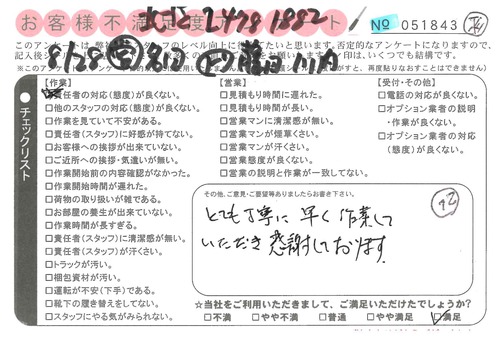 お客様不満足度アンケート
№ 051843
2478 1882
8/28
【作業】
□責任者の対応(態度)が良くない。
□他のスタッフの対応(態度)が良くない。
□作業を見ていて不安がある。
□責任者(スタッフ)に好感が持てない。
□お客様への挨拶が出来ていない。
□ご近所への挨拶・気遣いが無い。
□作業開始前の内容確認がなかった。
□作業開始時間が遅れた。
□荷物の取り扱いが雑である。
□お部屋の養生が出来ていない。
□作業時間が長すぎる。
□責任者(スタッフ)に清潔感が無い。
□責任者(スタッフ)が汗くさい。
□トラックが汚い。
□梱包資材が汚い。
□運転が不安(下手)である。
□靴下の履き替えをしてない。
□スタッフにやる気がみられない。
【営業】
□見積もり時間に遅れた。
□見積もり時間が長い。
□営業マンに清潔感が無い。
□営業マンが煙草くさい。
□営業マンが汗くさい。
□営業態度が良くない。
□営業の説明と作業が一致してない。
【受付・その他】
□電話の対応が良くない。
□オプション業者の説明
・作業が良くない。
□オプション業者の対応
(態度)が良くない。
●チェックリスト
その他、ご意見・ご要望等ありましたらお書き下さい。
92
とても丁寧に早く作業して
いただき感謝しております。
☆当社をご利用いただきまして、ご満足いただけたでしょうか?
□不満 □やや不満 □普通 □やや満足 ☑満足